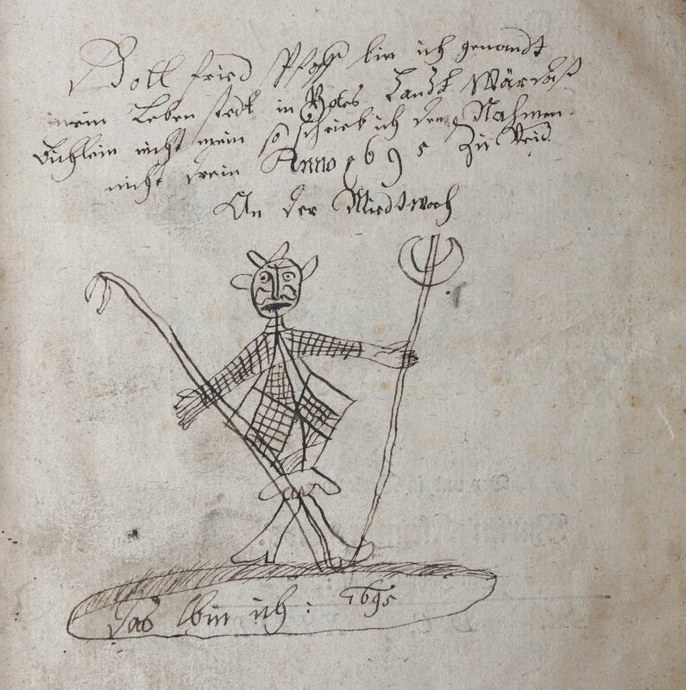 Gott fried bin ich genandt
mein Leben stedt in Gotes Handt Wär daß
Büchlein nicht mein so schrieb ich den Nahmen
nicht drein Anno 1695 Zu
An der Miedtwoch
das bin ich: 1695